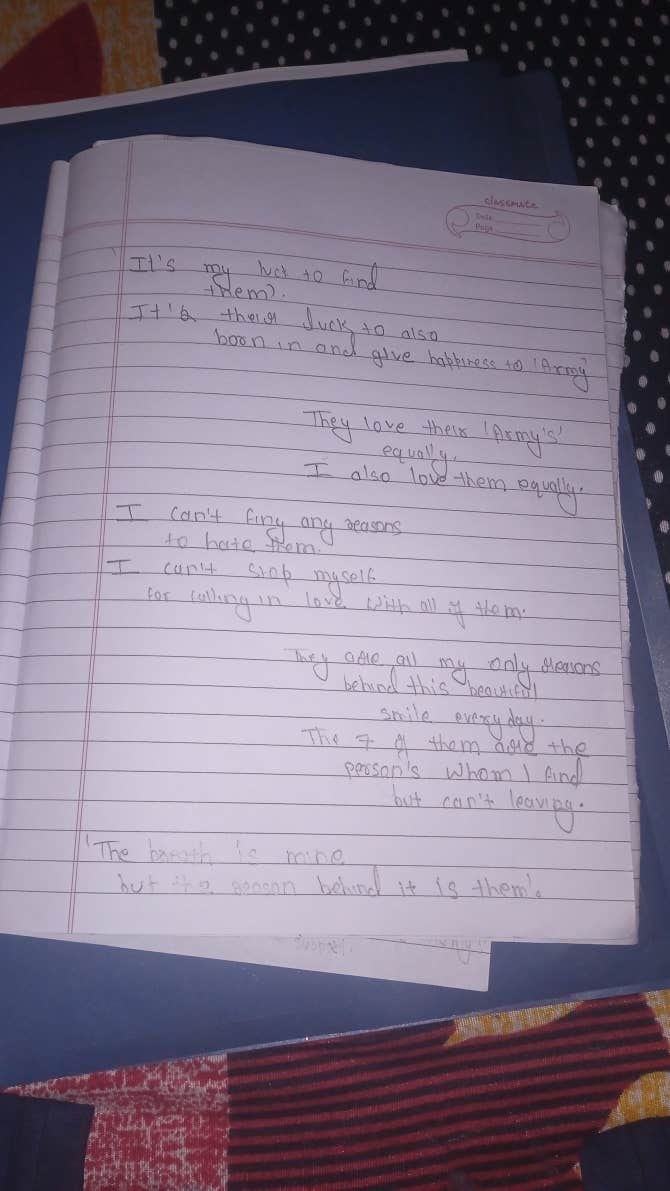 classmate
Date
Page
'It's my luck to find
them'.
It's their luck to also
boon in and give happiness to 'Army'
They love their 'Army's'
equally.
I also love them equally.
I can't finy any reasons
to hate them.
I can't stop myself
for falling in love with all of them.
They are all my only reasons
behind this beautiful
smile everyday.
The 7 of them are the
person's whom I find
but can't leaving.
'The breath is mine
but the reason behind it is them'.